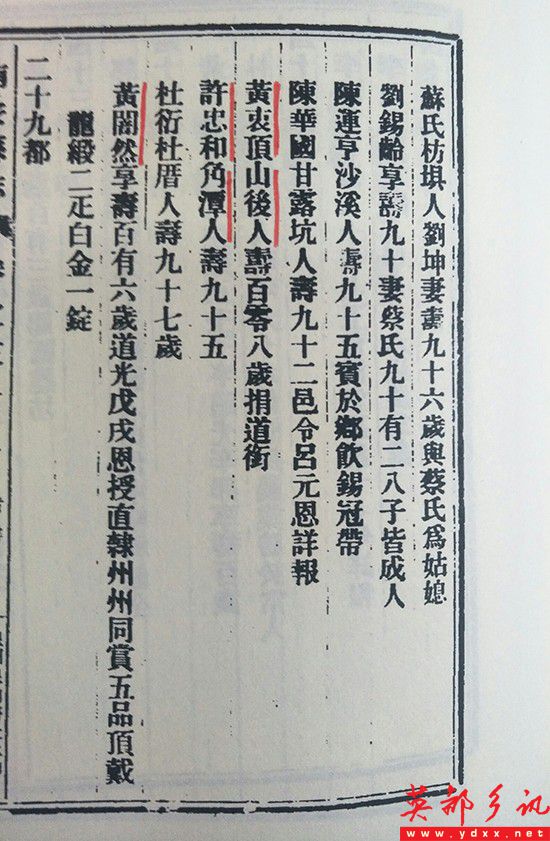 蘇氏枋垻人劉坤妻壽九十六歲與蔡氏爲姑媳
劉錫齡享壽九十妻蔡氏九十有二八子皆成人
陳運亨沙溪人壽九十五賓於鄉飲錫冠帶
陳華國甘露坑人壽九十二邑令呂元恩詳報
黃衷頂山後人壽百零八歲捐道銜
許忠和角潭人壽九十五
杜衍杜厝人壽九十七歲
黃闇然享壽百有六歲道光戊戌恩授直隸州州同賞五品頂戴
龍緞二疋白金一錠
二十九都
英都乡讯
www.ydxx.net